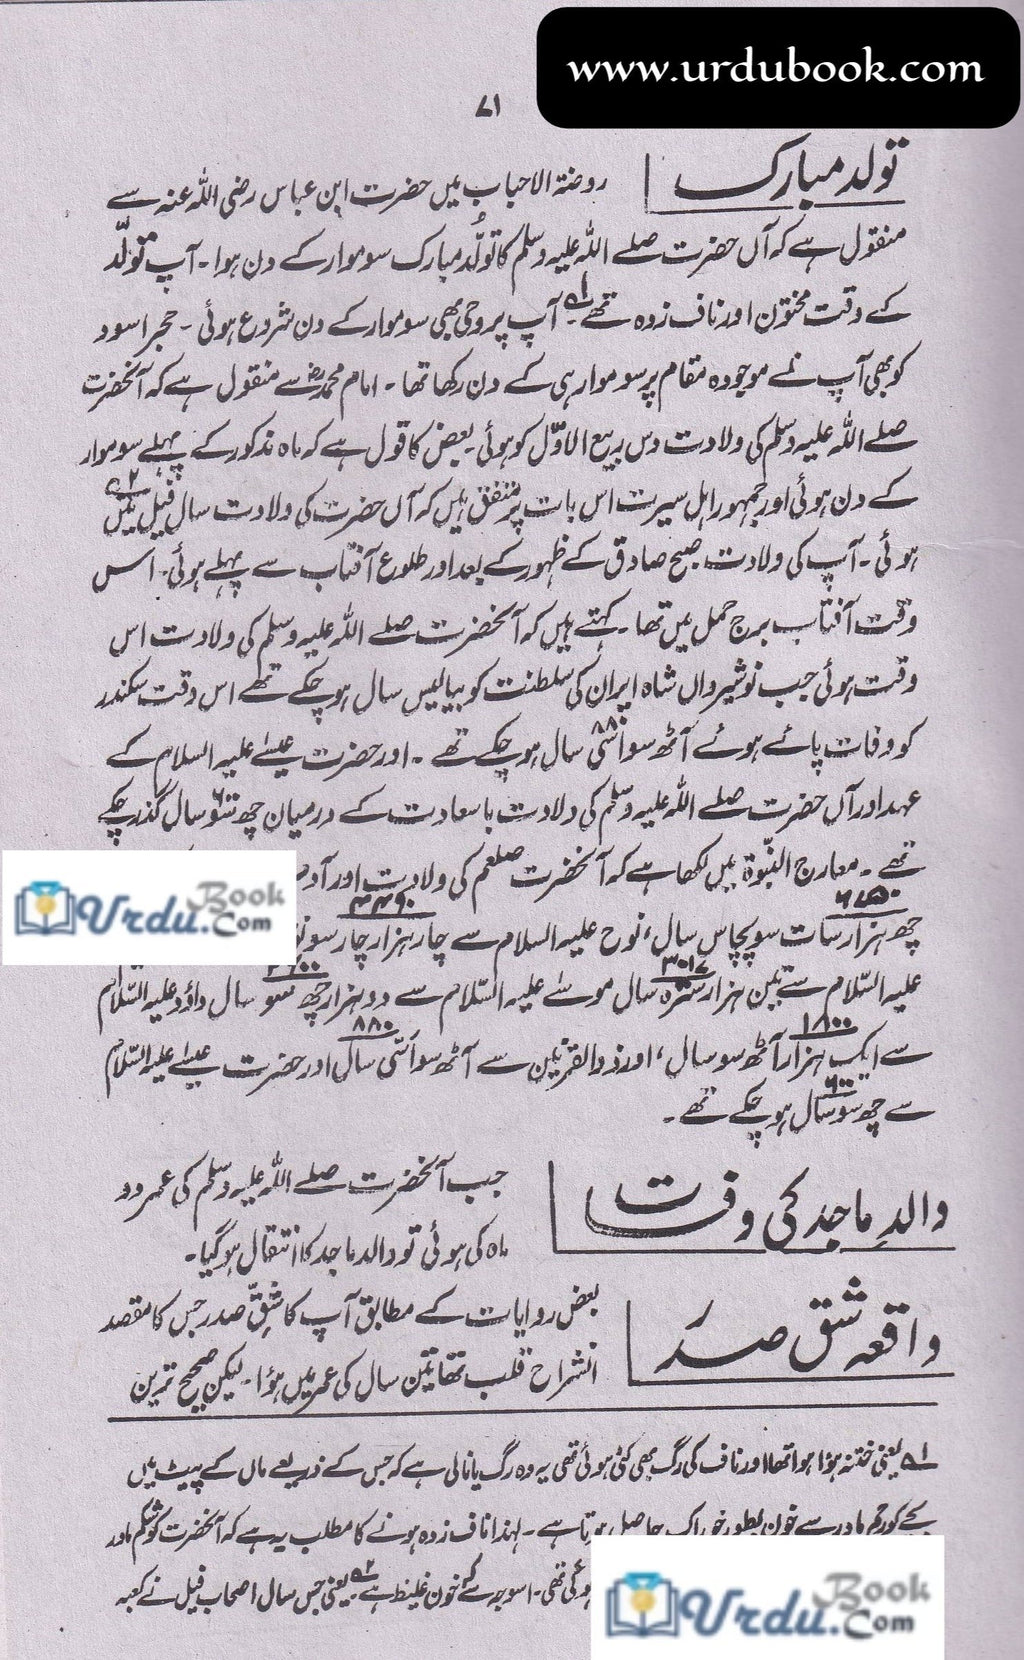 www.urdubook.com
۷۱
تولد مبارک
روضۃ الاحباب میں حضرت ابن عباس رضی اللہ عنہ سے
منقول ہے کہ آں حضرت صلے اللہ علیہ وسلم کا تولُّد مبارک سوموار کے دن ہوا۔ آپ تولّد
کے وقت مختون اور ناف زدہ تھے۔ ؎۱ آپ پر وحی بھی سوموار کے دن شروع ہوئی۔ حجر اسود
کو بھی آپ نے موجودہ مقام پر سوموار ہی کے دن رکھا تھا۔ امام محمدؒ سے منقول ہے کہ آنحضرت
صلے اللہ علیہ وسلم کی ولادت دس ربیع الاوّل کو ہوئی بعض کا قول ہے کہ ماہ مذکور کے پہلے سوموار
کے دن ہوئی اور جمہور اہل سیرت اس بات پر متفق ہیں کہ آں حضرت کی ولادت سال فیل میں ؎۲
ہوئی۔ آپ کی ولادت صبح صادق کے ظہور کے بعد اور طلوع آفتاب سے پہلے ہوئی۔ اس
وقت آفتاب برج حمل میں تھا۔ کہتے ہیں کہ آنحضرت صلے اللہ علیہ وسلم کی ولادت اس
وقت ہوئی جب نوشیرواں شاہ ایران کی سلطنت کو بیالیس سال ہو چکے تھے اس وقت سکندر
کو وفات پائے ہوئے آٹھ سو اسّی ۸۸۰ سال ہو چکے تھے۔ اور حضرت عیسےٰ علیہ السلام کے
عہد اور آں حضرت صلے اللہ علیہ وسلم کی ولادت باسعادت کے درمیان چھ سو ۶۰۰ سال گذر چکے
تھے۔ معارج النبّوۃ میں لکھا ہے کہ آنحضرت صلعم کی ولادت اور
۶۷۵۰ چھ ہزار سات سو پچاس سال، نوح علیہ السلام سے ۴۴۹۰ چار ہزار چار سو
علیہ السّلام سے ۳۰۱۷ تین ہزار سترہ سال موسےٰ علیہ السّلام سے دو ہزار چھ سو سال داؤد علیہ السّلام
سے ۱۸۰۰ ایک ہزار آٹھ سو سال، اور ذوالقرنین سے ۸۸۰ آٹھ سو اسّی سال اور حضرت عیسےٰ علیہ السّلام
سے ۶۰۰ چھ سو سال ہو چکے تھے۔
والدِ ماجد کی وفات
جب آنحضرت صلے اللہ علیہ وسلم کی عمر دو
ماہ کی ہوئی تو والد ماجد کا انتقال ہو گیا۔
واقعہ شق صدر
بعض روایات کے مطابق آپ کا شقِّ صدر جس کا مقصد
انشراح قلب تھا تین سال کی عمر میں ہؤا۔ لیکن صحیح ترین
؎۱ یعنی ختنہ ہؤا ہوا تھا اور ناف کی رگ بھی کٹی ہوئی تھی یہ وہ رگ یا نالی ہے کہ جس کے ذریعے ماں کے پیٹ میں
بچے کو رحم مادر سے خون بطور خوراک حاصل ہوتا ہے۔ لہذا ناف زدہ ہونے کا مطلب یہ ہے کہ آنحضرت کو شکم مادر
ہوئی تھی۔ اس وجہ سے کہ خون غلیظ ہے ؎۲ یعنی جس سال اصحاب فیل نے کعبہ
Urdu Book .Com
Urdu Book .Com